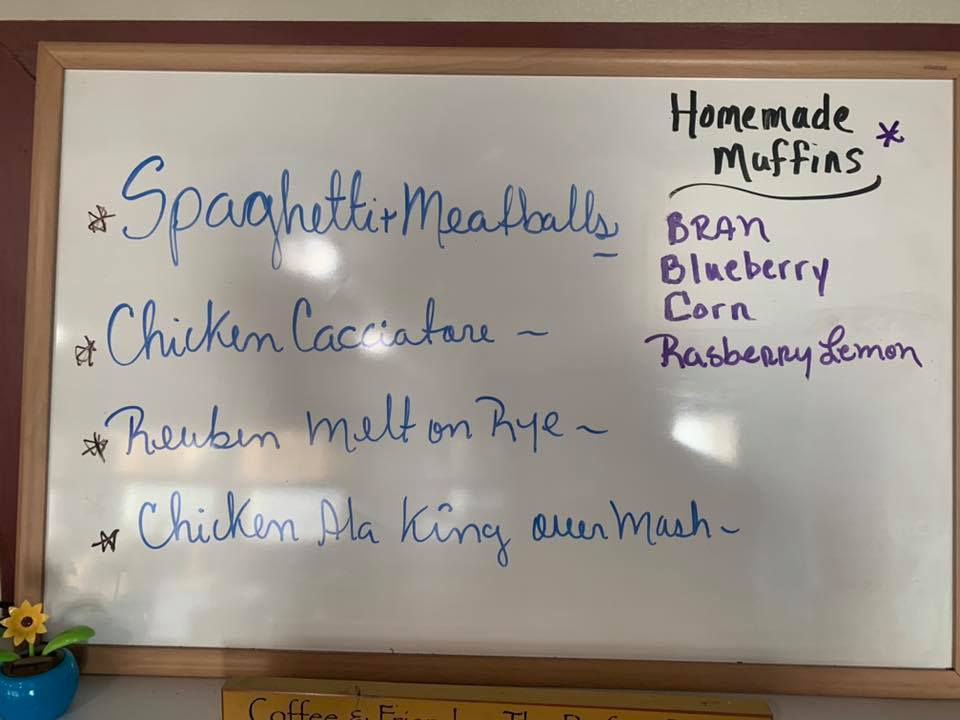 Spaghetti + Meatballs
Chicken Cacciatore ~
Reuben Melt on Rye ~
Chicken Ala King over Mash ~
Homemade
Muffins *
BRAN
Blueberry
Corn
Rasberry Lemon
Coffee &